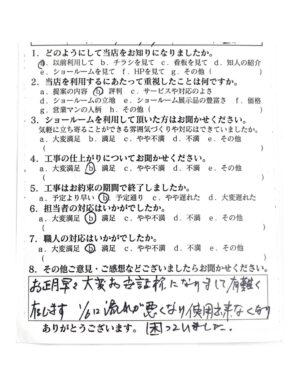 1. どのようにして当店をお知りになりましたか。
a. 以前利用して b. チラシを見て c. 看板を見て d. 知人の紹介
e. ショールームを見て f. HPを見て g. その他 (
)
2. 当店を利用するにあたって重視したことは何ですか。
a. 提案の内容 b. 評判 c. サービスや対応のよさ
d. ショールームの立地 e. ショールーム展示品の豊富さ f. 価格
g. 営業マンの人柄 h. その他 (
)
3. ショールームを利用して頂いた方はお聞かせください。
気軽に立ち寄ることができる雰囲気づくりや対応はできていましたか。
a. 大変満足 b. 満足 c. やや不満 d. 不満 e. その他
( )
4. 工事の仕上がりについてお聞かせください。
a. 大変満足 b. 満足 c. やや不満 d. 不満 e. その他
( )
5. 工事はお約束の期間で終了しましたか。
a. 予定より早い b. 予定通り c. やや遅れた d. 大変遅れた
6. 担当者の対応はいかがでしたか。
a. 大変満足 b. 満足 c. やや不満 d. 不満 e. その他
( )
7. 職人の対応はいかがでしたか。
a. 大変満足 b. 満足 c. やや不満 d. 不満 e. その他
( )
8. その他ご意見・ご感想などございましたらお聞かせください。
お正月早々大変お世話様になりまして有難く
存じます 1/6に流れが悪くなり使用出来なくなり
ありがとうございます。 困っていました。